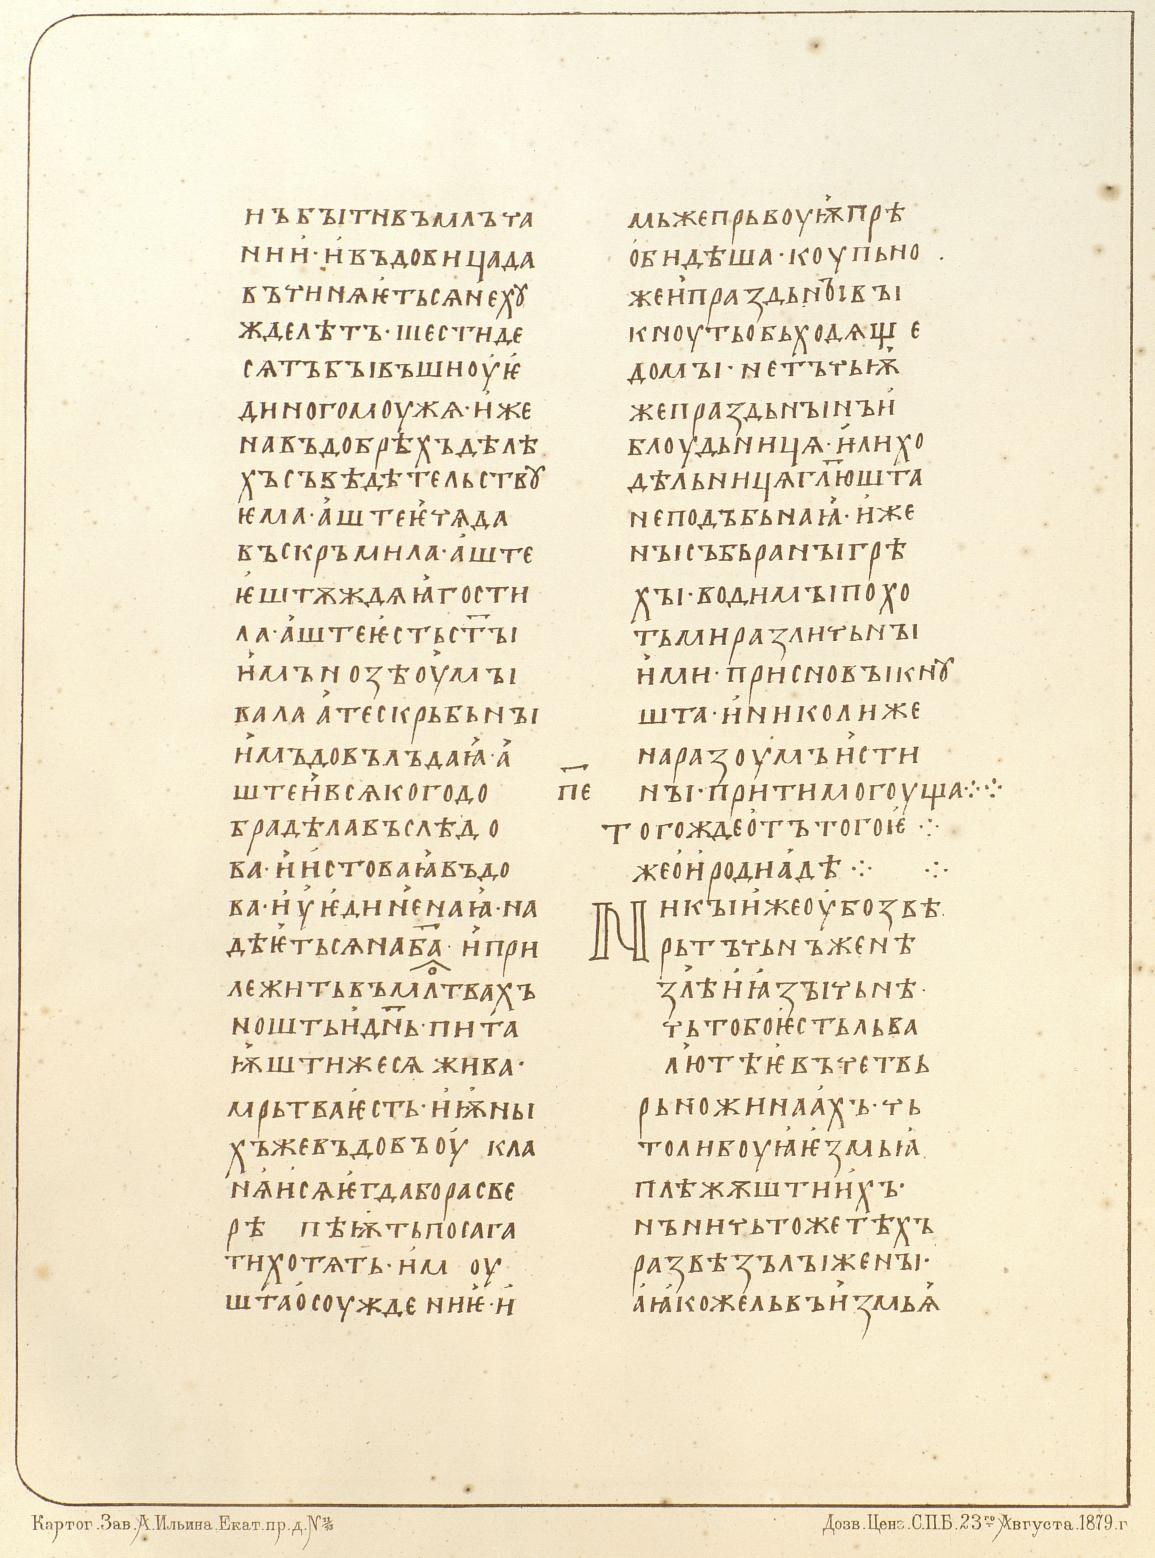 нъбꙑтнвъмлъта
нии·и҆въдовицада
въчинѧѥтьсѧнеꙗхꙋ
жделѣтъ·шестиде
сѧтъбꙑвъшиоу҆ѥ҆
диногомоужѧ·и҆же
навъдобрѣхъдѣлѣ
хъсъвѣдѣтельствꙋ
ѥма·а҆штеѥ҆чѧда
въскръмила·а҆ште
ѥ҆штѫждѧꙗ҆гости
ла·а҆штеѥ҆стьст҃ꙑ
и҆мънозѣоу҆мꙑ
вала а҆тескрьбьнꙑ
и҆мъдовълъдаꙗ҆·а҆
штеи҆всѧкогодо
брадѣлавъслѣдо
ва·и҆и҆стоваꙗ҆въдо
ва·и҆у҆ѥ҆дине҆наꙗ҆·на
дѣѥ҆тьсѧнаба҃·и҆при
лежитьвъмл҃твахъ
ноштьи҆дн҃ь·пита
ѭ҆штижесѧ жива·
мрьтваѥ҆сть·и҆ѭ҆нꙑ
хъжевъдовъоу҆ кла
нѧ҆и҆сѧѥ҆гдаборасве
рѣ пѣѭ҆тьпосага
тихотѧть·и҆м оу
шта҆о҆соуждениѥ҆·и҆
мьжепрьвоуѭ҆прѣ
о҆бидѣша·коупьно
жеи҆праздьнꙑвꙑ
кноутьобьходѧще
домꙑ·нетъчьѭ҆
жепраздьнꙑнъи҆
блоудьницѧ·и҆лихо
дѣльницѧгл҃юшта
неподъбьнаꙗ҆·и҆же
нꙑсъбьранꙑгрѣ
хꙑ·водимꙑпохо
тьмиразличьнꙑ
и҆ми·присновꙑкнꙋ
шта·и҆николиже
наразоу҆мъи҆сти
пе нꙑ·притимогоуща⁘⁘
тогождео҆тътогоѥ҆ ⁘
жео҆и҆родиа҆дѣ ⁘ ⁘
Никꙑи҆жеоу҆бозвѣ
рьтъчьнъженѣ
злѣи҆ꙗ҆зꙑчьнѣ·
чьтобоѥ҆стьльва
лю҆тѣѥ҆въчетвь
рьножинаа҆хъ·чь
толибоуꙗ҆ѥ҆змьꙗ҆
плѣжѫштии҆хъ·
нъничьтожетѣхъ
развѣзълꙑженꙑ·
а҆ꙗ҆кожельвъи҆змьѧ҆
Картог.Зав.А.Ильина.Екат.пр.д.№
Дозв.Ценз.С.П.Б.23го Августа.1879.г